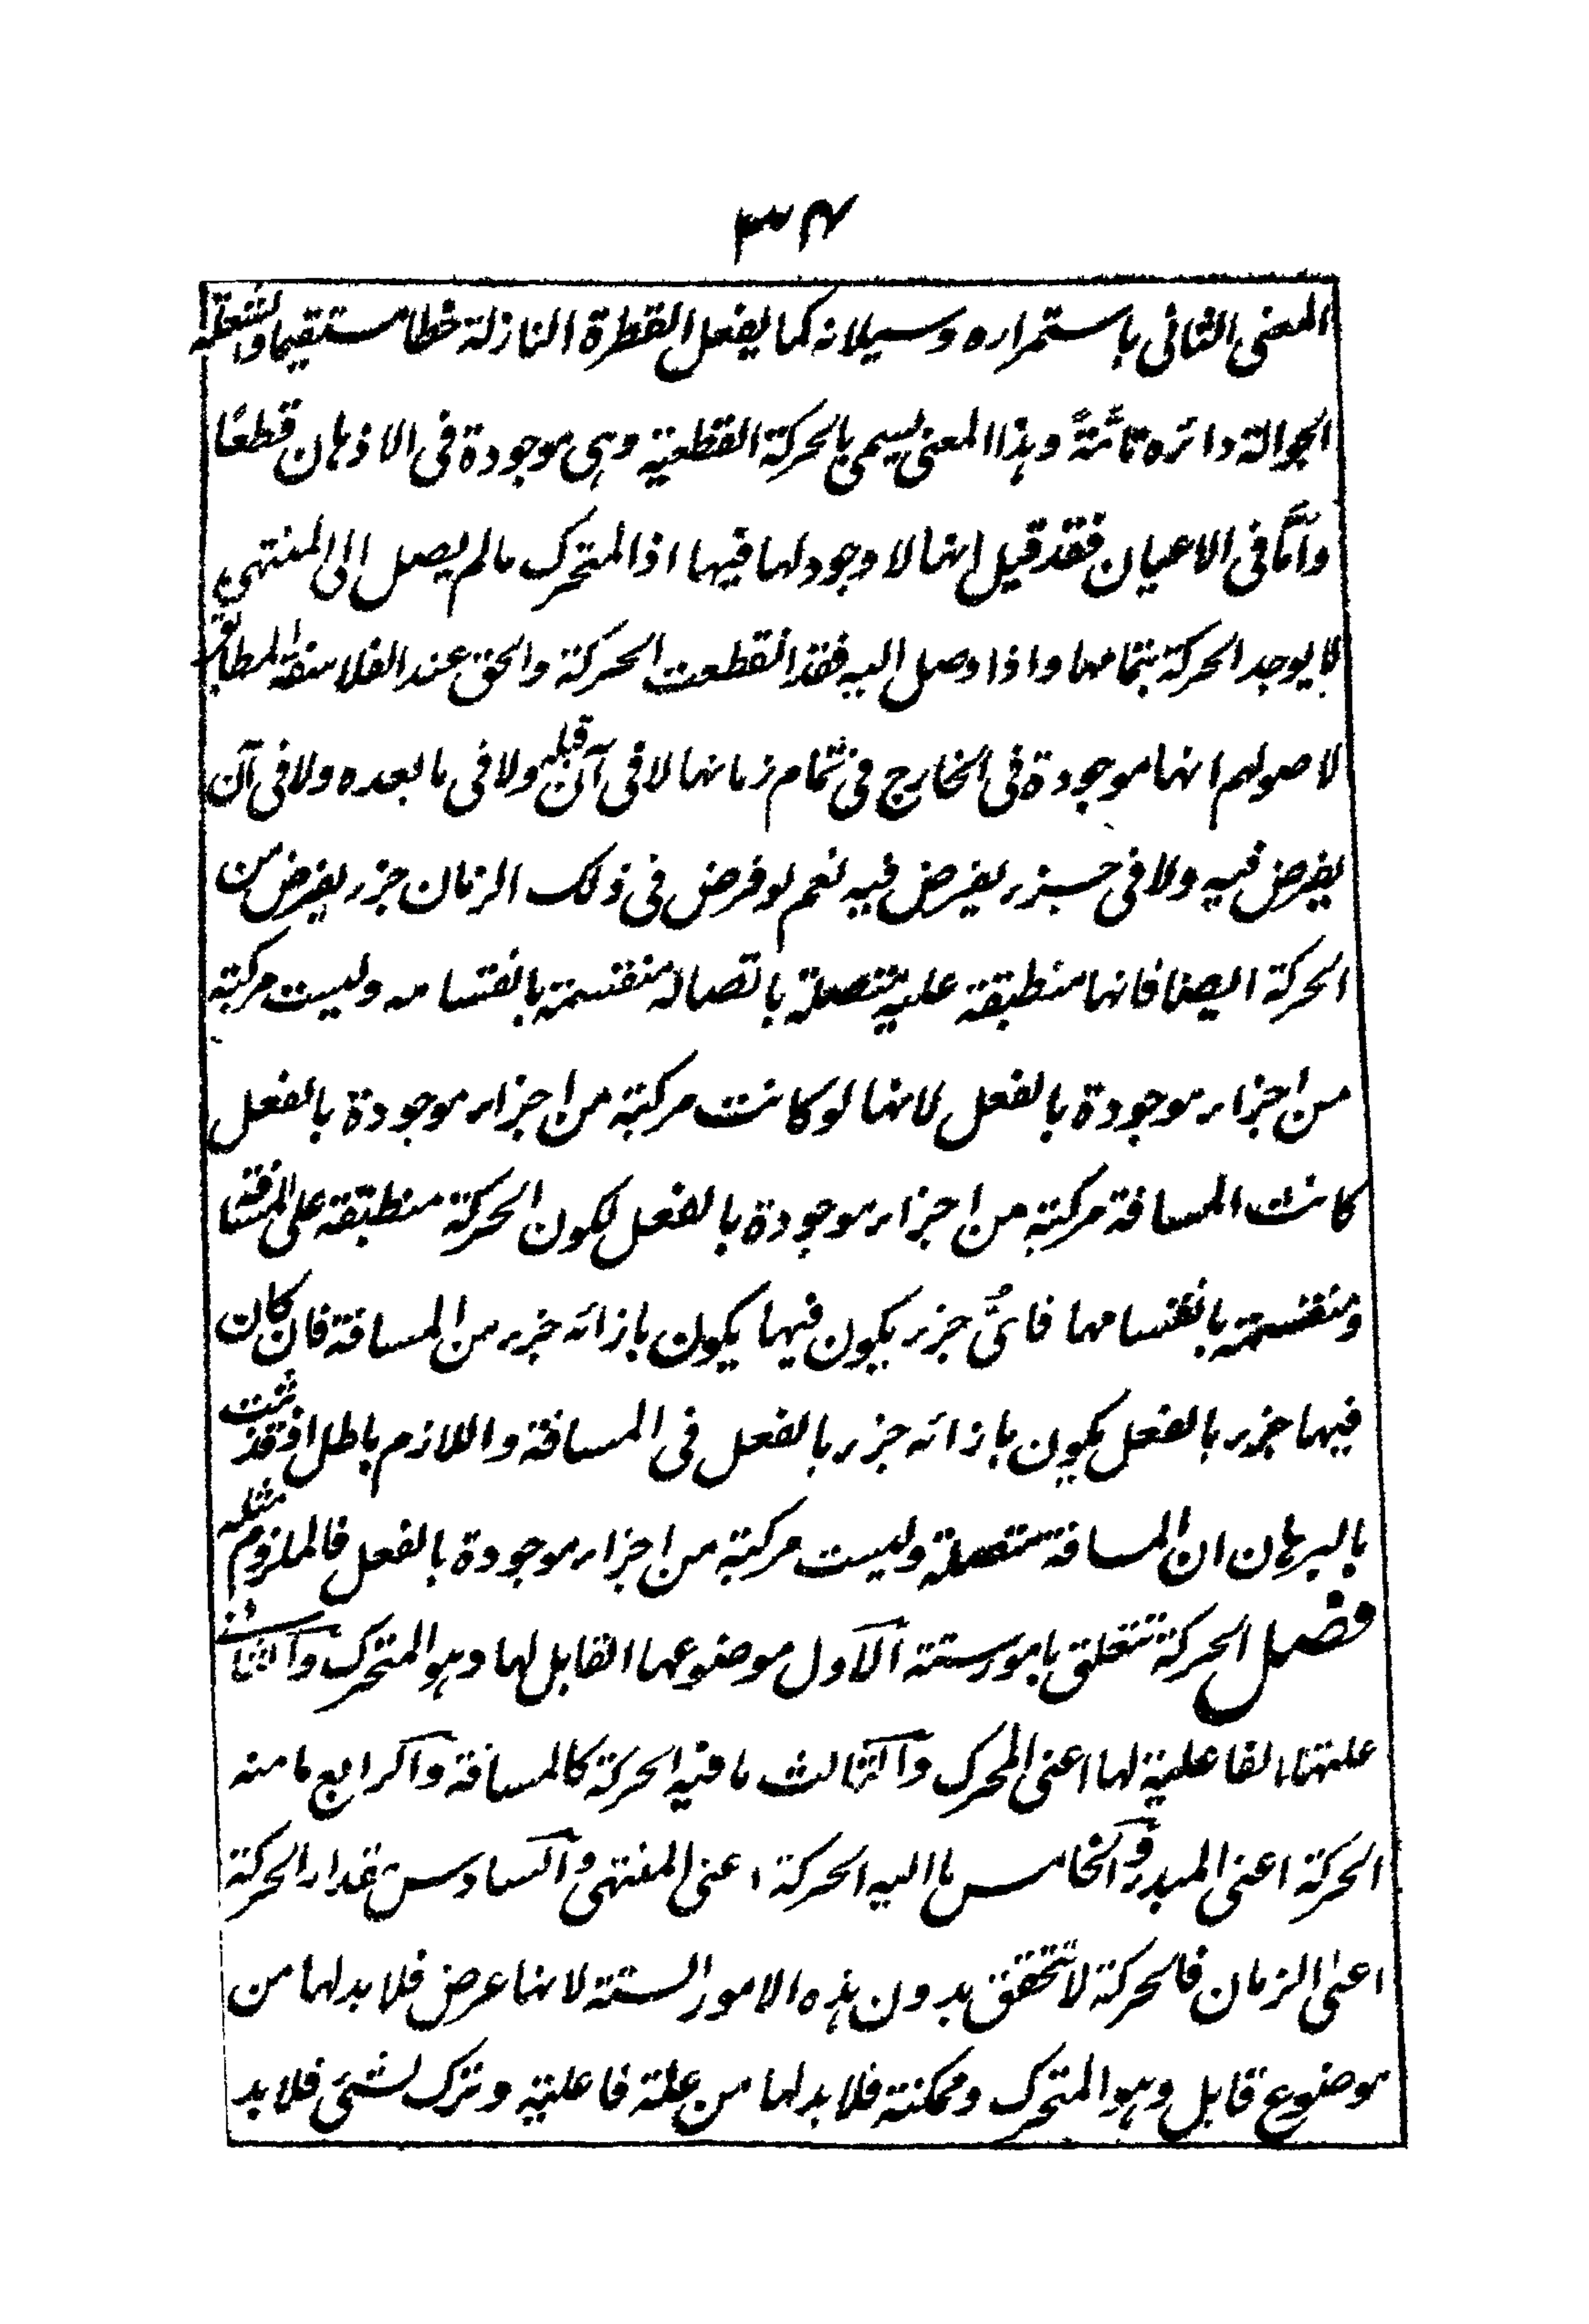 ٣٤
المعنى الثانى باستمراره وسيلانه كما يفعل القطرة النازلة خطا مستقيما والشعلة
الجوالة دائره تامّةً وهذا المعنى يسمى بالحركة القطعية وهى موجودة فى الاذهان قطعًا
وامّا فى الاعيان فقد قيل انها لا وجود لها فيها اذ المتحرك مالم يصل الى المنتهى
لا يوجد الحركة بتمامها واذا وصل اليه فقد انقطعت الحركة والحق عند الفلاسفة المطابق
لاصولهم انها موجودة فى الخارج فى تمام زمانها لا فى آن قبله ولا فى ما بعده ولا فى آن
يفرض فيه ولا فى جزء يفرض فيه نعم لو فرض فى ذلك الزمان جزء يفرض من
الحركة ايضا فانها منطبقة عليه متصلة باتصاله منقسمة بانقسامه وليست مركبة
من اجزاء موجودة بالفعل لانها لو كانت مركبة من اجزاء موجودة بالفعل
كانت المسافة مركبة من اجزاء موجودة بالفعل لكون الحركة منطبقة على المسافة
ومنقسمة بانقسامها فاىُّ جزء يكون فيها يكون بازائه جزء من المسافة فان كان
فيها جزء بالفعل يكون بازائه جزء بالفعل فى المسافة واللازم باطل اذ قد ثبت
بالبرهان ان المسافة متصلة وليست مركبة من اجزاء موجودة بالفعل فالملزوم مثله
فصل الحركة تتعلق بامور ستة الاول موضوعها القابل لها وهو المتحرك والثانى
علتها الفاعلية لها اعنى المحرك والثالث ما فيه الحركة كالمسافة والرابع ما منه
الحركة اعنى المبدء والخامس ما اليه الحركة اعنى المنتهى والسادس مقدار الحركة
اعنى الزمان فالحركة لا تتحقق بدون هذه الامور الستة لانها عرض فلا بد لها من
موضوع قابل وهو المتحرك وممكنة فلا بد لها من علة فاعلية وترك لشئ فلا بد